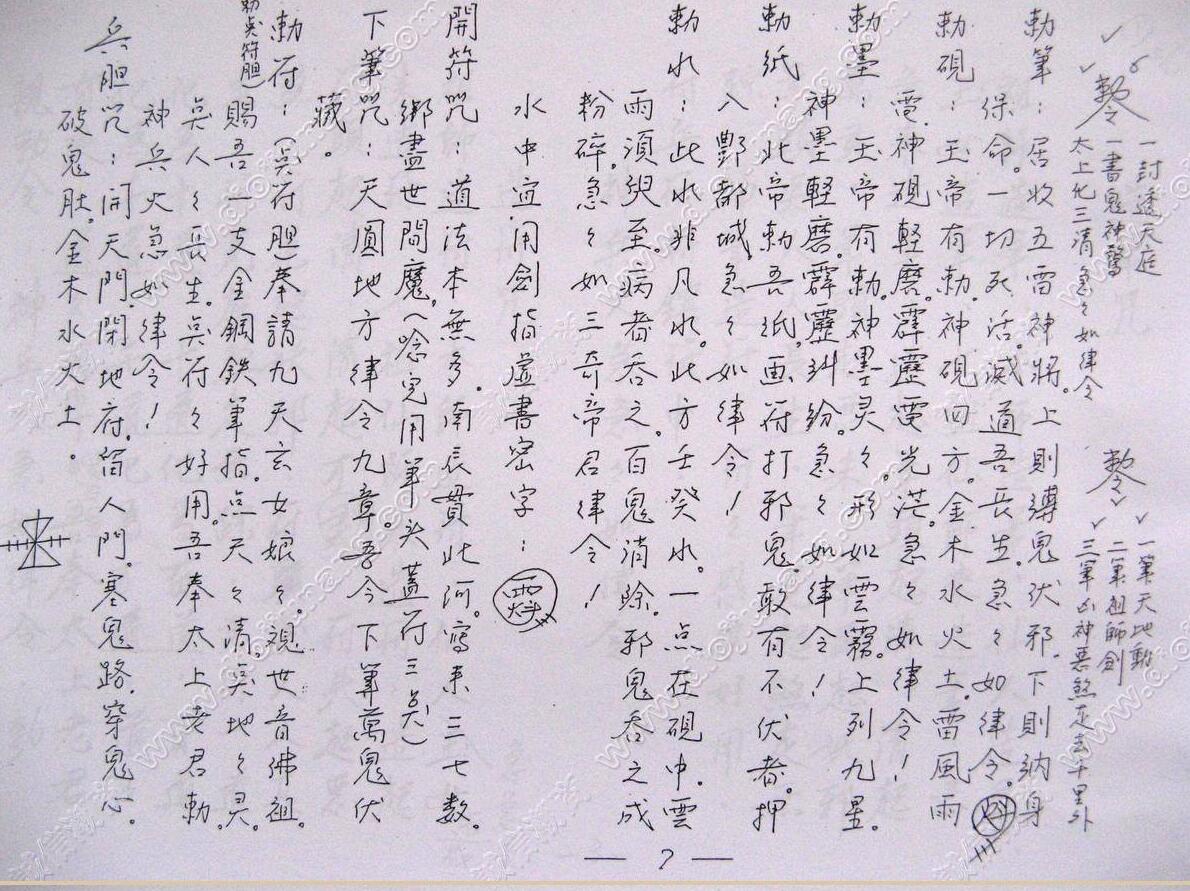 勅令
一討透天庭
一書鬼神驚
太上化三清急々如律令
勅令
一筆天地動
二筆祖師劍
三筆凶神惡煞走去千里外
勅筆：居收五雷神將。上則縛鬼伏邪。下則納身
保命。一切死活。滅道吾長生。急々如律令。
勅硯：玉帝有勅。神硯四方。金木水火土。雷風雨
電。神硯軽磨。霹靂電光茫。急々如律令！
勅墨：玉帝有勅。神墨灵々。形如雲霧。上列九星。
神墨軽磨。霹靂糾紛。急々如律令！
勅紙：此帝勅吾紙。画符打邪鬼。敢有不伏者。押
入酆都城。急々如律令！
勅水：此水非凡水。此方壬癸水。一点在硯中。雲
雨須臾至。病者吞之。百鬼消除。邪鬼吞之成
粉碎。急々如三奇帝君律令！
水中宜用劍指虛書密字：
開符咒：道法本無多。南辰貫此河。寫來三七数。
綁盡世間魔。（唸完用筆头蓋符三点）
下筆咒：天圓地方律令九章。吾今下筆萬鬼伏
藏。
勅符：（点符胆）奉請九天玄女娘々。視世音佛祖。
勅点符胆）賜吾一支金鋼鉄筆指。点天々清。点地々灵。
点人々長生。点符々好用。吾奉太上老君勅。
神兵火急如律令！
兵胆咒：開天門。閉地府。留人門。塞鬼路。穿鬼心。
破鬼肚。金木水火土。
— 7 —